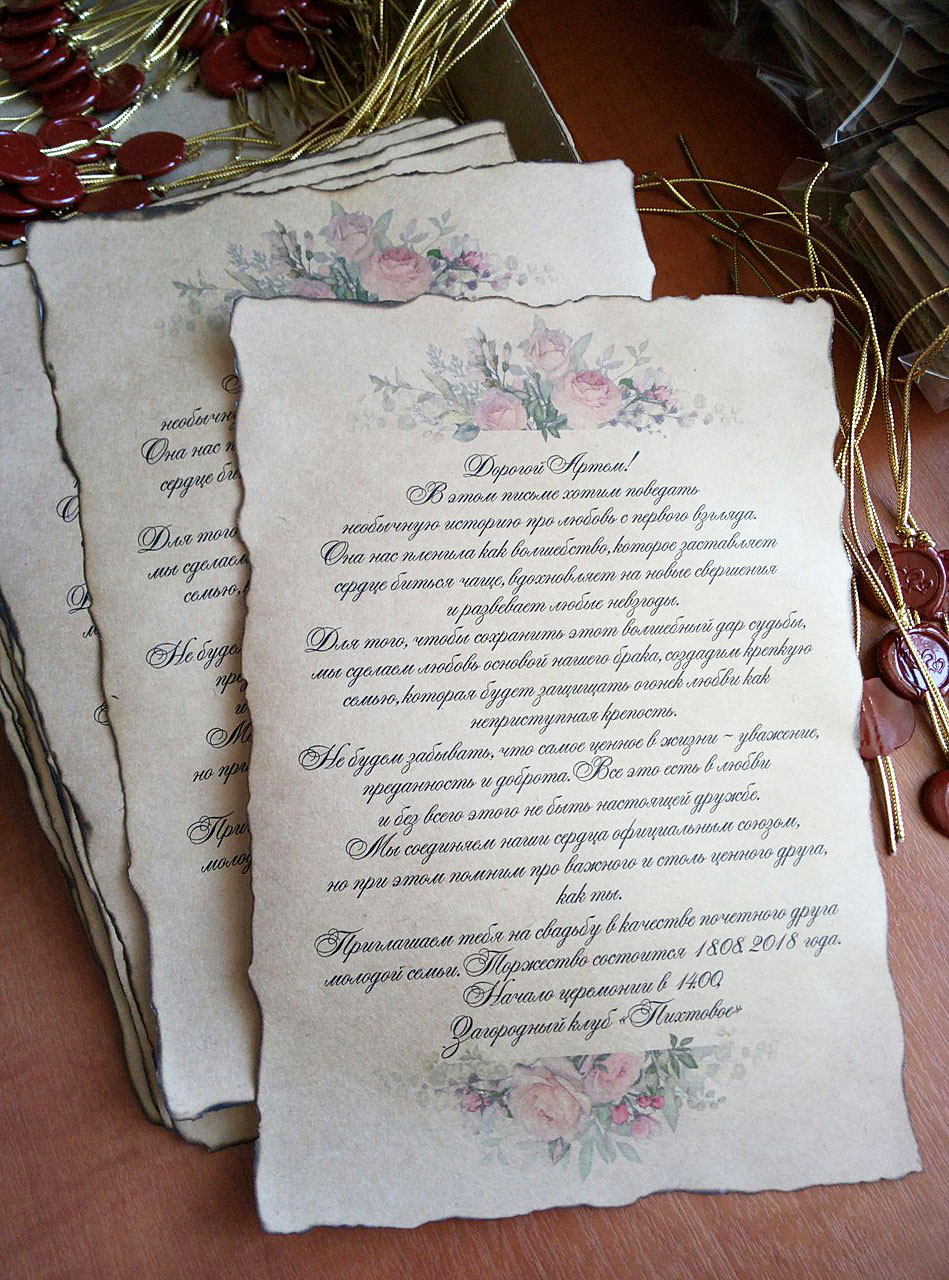 Дорогой Артем!
В этом письме хотим поведать
необычную историю про любовь с первого взгляда.
Она нас пленила как волшебство, которое заставляет
сердце биться чаще, вдохновляет на новые свершения
и развевает любые невзгоды.
Для того, чтобы сохранить этот волшебный дар судьбы,
мы сделаем любовь основой нашего брака, создадим крепкую
семью, которая будет защищать огонек любви как
неприступная крепость.
Не будем забывать, что самое ценное в жизни ~ уважение,
преданность и доброта. Все это есть в любви
и без всего этого не быть настоящей дружбе.
Мы соединяем наши сердца официальным союзом,
но при этом помним про важного и столь ценного друга,
как ты.
Приглашаем тебя на свадьбу в качестве почетного друга
молодой семьи. Торжество состоится 18.08.2018 года.
Начало церемонии в 14.00,
Загородный клуб «Пихтовое»
необычну
Она нас
сердце би
Для того
мы сделаем
семью,
Не буде
пре
и
М
но при
При
молод